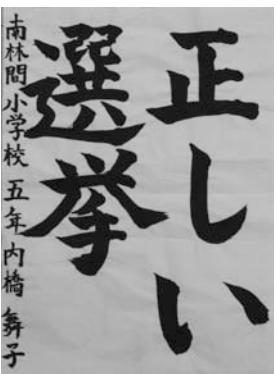 正しい
選挙
南林間小学校 五年 内橋 舞子